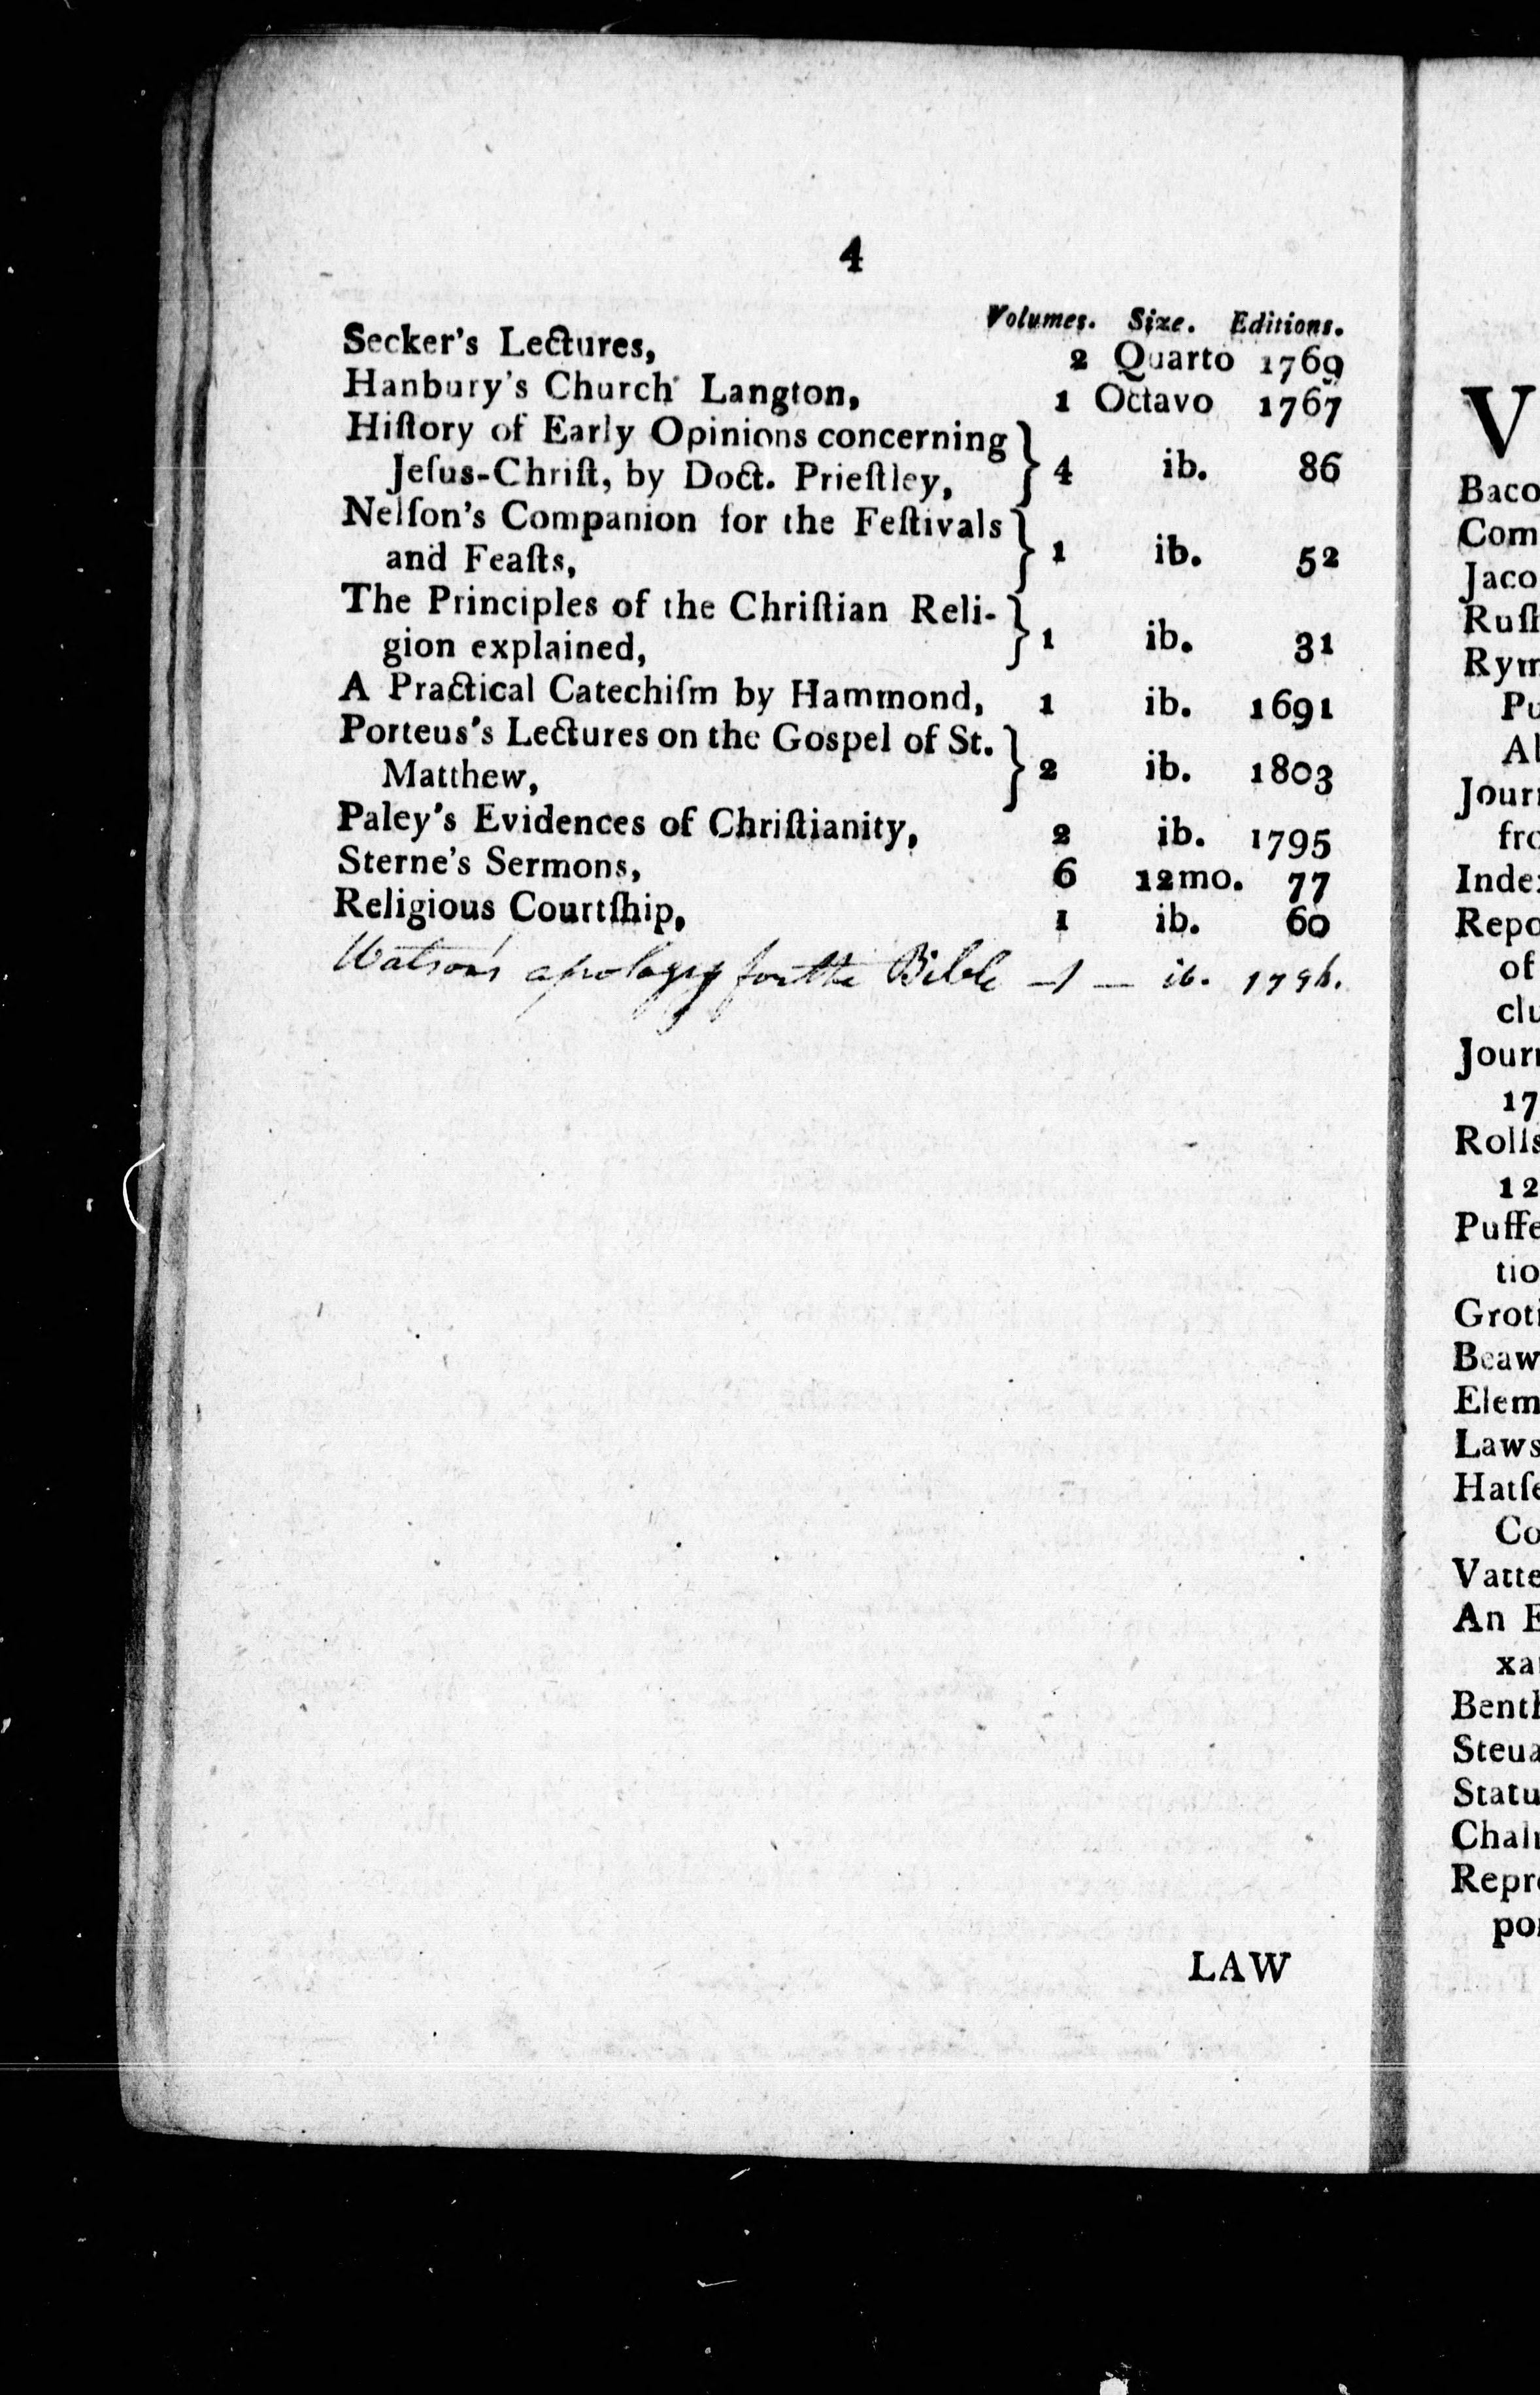 4
Volumes. Size. Editions.
Secker's Lectures, 2 Quarto 1769
Hanbury's Church Langton, 1 Octavo 1767
Hiſtory of Early Opinions concerning
Jeſus-Chriſt, by Doct. Prieſtley, } 4 ib. 86
Nelſon's Companion for the Feſtivals
and Feaſts, } 1 ib. 52
The Principles of the Chriſtian Reli-
gion explained, } 1 ib. 31
A Practical Catechiſm by Hammond, 1 ib. 1691
Porteus's Lectures on the Gospel of St.
Matthew, } 2 ib. 1803
Paley's Evidences of Chriſtianity, 2 ib. 1795
Sterne's Sermons, 6 12mo. 77
Religious Courtſhip, 1 ib. 60
Watson's apology for the Bible — 1 — ib. 1796.
LAW
V
Baco
Com
Jaco
Ruſh
Rym
Pu
Al
Jour
fro
Inde
Repo
of
clu
Jour
17
Rolls
12
Puffe
tio
Groti
Beaw
Elem
Laws
Hatſe
Co
Vatte
An E
xa
Benth
Steua
Statu
Chal
Repr
po